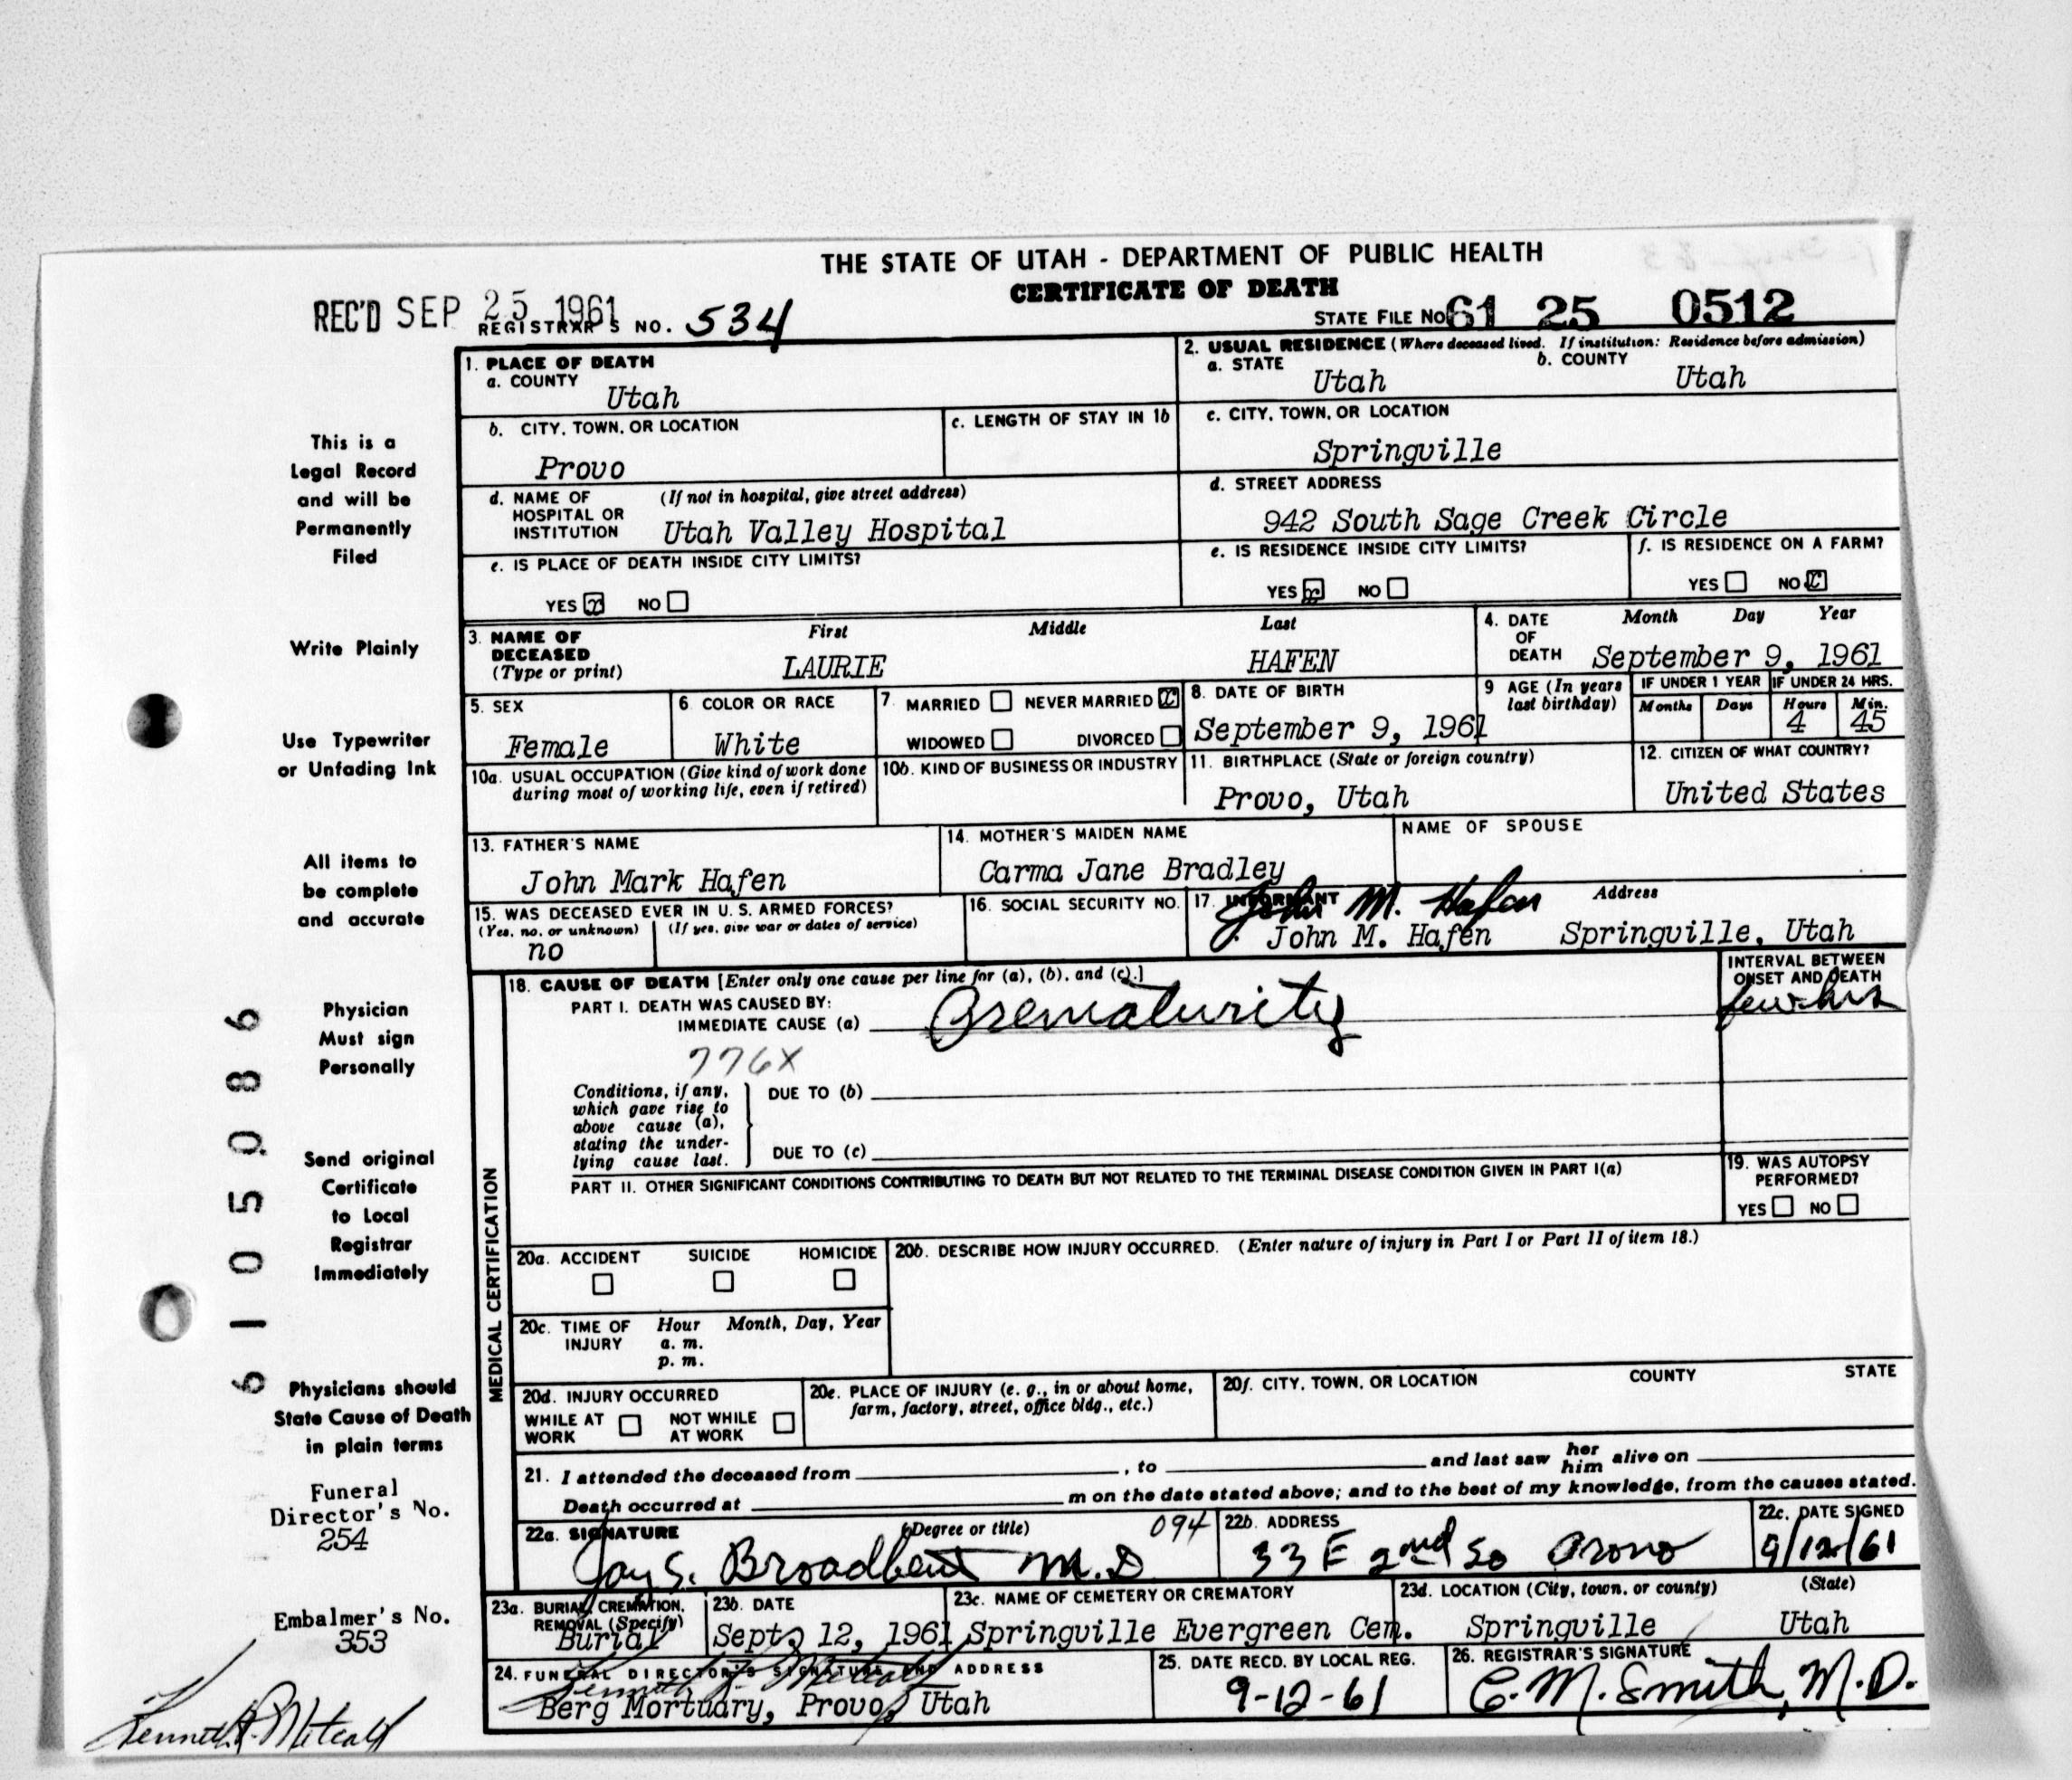 THE STATE OF UTAH - DEPARTMENT OF PUBLIC HEALTH
CERTIFICATE OF DEATH
REC'D SEP 25 1961
REGISTRAR'S NO. 534
STATE FILE NO. 61 25 0512
This is a
Legal Record
and will be
Permanently
Filed
Write Plainly
Use Typewriter
or Unfading Ink
All items to
be complete
and accurate
Physician
Must sign
Personally
Send original
Certificate
to Local
Registrar
Immediately
Physicians should
State Cause of Death
in plain terms
Funeral
Director's No.
254
Embalmer's No.
353
Kenneth R. Metcalf
6105086
1. PLACE OF DEATH
a. COUNTY
Utah
b. CITY, TOWN, OR LOCATION
Provo
c. LENGTH OF STAY IN 1b
d. NAME OF HOSPITAL OR INSTITUTION (If not in hospital, give street address)
Utah Valley Hospital
e. IS PLACE OF DEATH INSIDE CITY LIMITS?
YES x NO
2. USUAL RESIDENCE (Where deceased lived. If institution: Residence before admission)
a. STATE Utah b. COUNTY Utah
c. CITY, TOWN, OR LOCATION
Springville
d. STREET ADDRESS
942 South Sage Creek Circle
e. IS RESIDENCE INSIDE CITY LIMITS?
YES x NO
f. IS RESIDENCE ON A FARM?
YES NO x
3. NAME OF DECEASED (Type or print)
First Middle Last
LAURIE HAFEN
4. DATE OF DEATH Month Day Year
September 9, 1961
5. SEX
Female
6. COLOR OR RACE
White
7. MARRIED NEVER MARRIED x
WIDOWED DIVORCED
8. DATE OF BIRTH
September 9, 1961
9 AGE (In years last birthday)
IF UNDER 1 YEAR IF UNDER 24 HRS.
Months Days Hours Min.
4 45
10a. USUAL OCCUPATION (Give kind of work done during most of working life, even if retired)
10b. KIND OF BUSINESS OR INDUSTRY
11. BIRTHPLACE (State or foreign country)
Provo, Utah
12. CITIZEN OF WHAT COUNTRY?
United States
13. FATHER'S NAME
John Mark Hafen
14. MOTHER'S MAIDEN NAME
Carma Jane Bradley
NAME OF SPOUSE
15. WAS DECEASED EVER IN U. S. ARMED FORCES?
(Yes, no, or unknown) (If yes, give war or dates of service)
no
16. SOCIAL SECURITY NO.
17. INFORMANT Address
John M. Hafen
John M. Hafen Springville, Utah
MEDICAL CERTIFICATION
18. CAUSE OF DEATH [Enter only one cause per line for (a), (b), and (c).]
PART I. DEATH WAS CAUSED BY:
IMMEDIATE CAUSE (a) Prematurity
INTERVAL BETWEEN ONSET AND DEATH
few hrs
776X
Conditions, if any, which gave rise to above cause (a), stating the underlying cause last.
DUE TO (b)
DUE TO (c)
PART II. OTHER SIGNIFICANT CONDITIONS CONTRIBUTING TO DEATH BUT NOT RELATED TO THE TERMINAL DISEASE CONDITION GIVEN IN PART I(a)
19. WAS AUTOPSY PERFORMED?
YES NO
20a. ACCIDENT SUICIDE HOMICIDE
20b. DESCRIBE HOW INJURY OCCURRED. (Enter nature of injury in Part I or Part II of item 18.)
20c. TIME OF INJURY Hour Month, Day, Year
a. m.
p. m.
20d. INJURY OCCURRED
WHILE AT WORK NOT WHILE AT WORK
20e. PLACE OF INJURY (e. g., in or about home, farm, factory, street, office bldg., etc.)
20f. CITY, TOWN, OR LOCATION COUNTY STATE
21. I attended the deceased from , to and last saw her him alive on
Death occurred at m on the date stated above; and to the best of my knowledge, from the causes stated.
22a. SIGNATURE (Degree or title) 094
Jay S. Broadbent M.D
22b. ADDRESS
33 E 2nd So Provo
22c. DATE SIGNED
9/12/61
23a. BURIAL, CREMATION, REMOVAL (Specify)
Burial
23b. DATE
Sept. 12, 1961
23c. NAME OF CEMETERY OR CREMATORY
Springville Evergreen Cem.
23d. LOCATION (City, town, or county) (State)
Springville Utah
24. FUNERAL DIRECTOR'S SIGNATURE AND ADDRESS
Kenneth R. Metcalf
Berg Mortuary, Provo, Utah
25. DATE RECD. BY LOCAL REG.
9-12-61
26. REGISTRAR'S SIGNATURE
C. M. Smith, M.D.